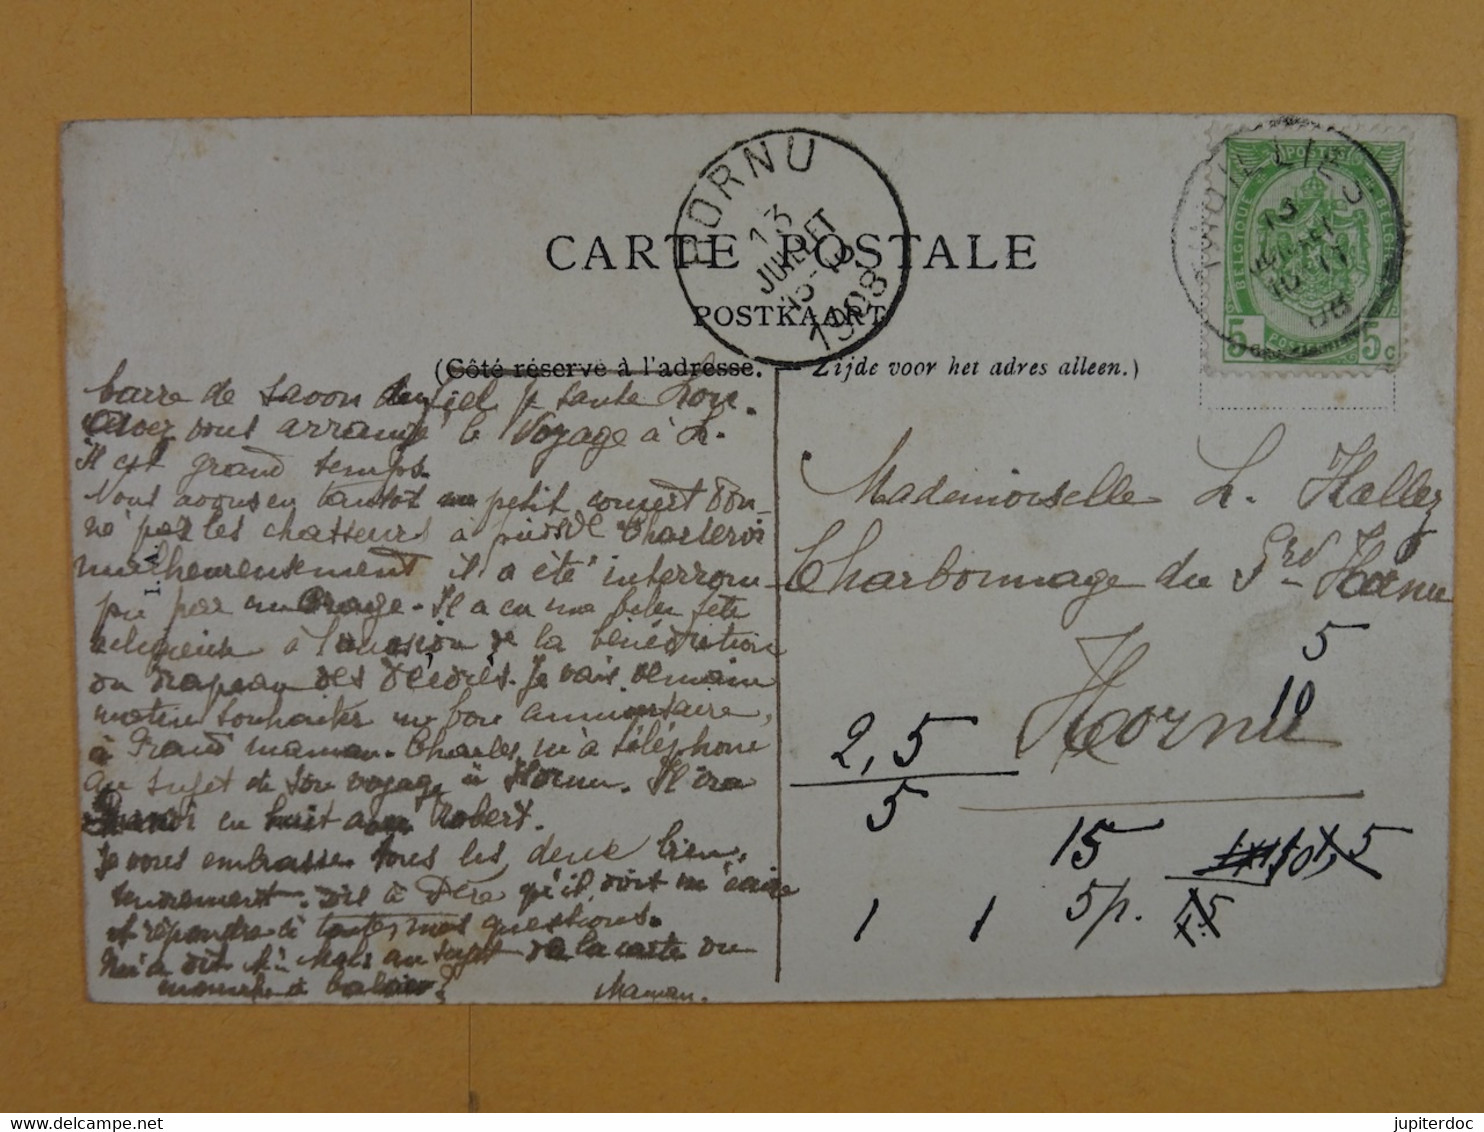 HORNU
13
JUILLET
1908
13
10-11
08
POSTES
BELGIQUE
5
5 c
CARTE POSTALE
POSTKAART
(Côté réservé à l'adresse.
Zijde voor het adres alleen.)
barre de savon
Avez vous arrangé le Voyage à L.
Il est grand temps.
Nous avons eu tantôt petit concert don-
né par les chasseurs à Charleroi
malheureusement il a été interrom-
pu par un Orage. Il a eu une fête
religieuse à l'occasion de la bénédiction
du drapeau des Décorés. Je vais demain
matin souhaiter un bon anniversaire,
à Grand maman. Charles m'a téléphoné
au sujet de son voyage à Hornu. Il ira
en huit avec Robert.
Je vous embrasse tous les deux bien,
tendrement. Dis à Père qu'il doit m'écrire
et répondre à toutes mes questions.
au sujet de la carte du
manche à balai?
Maman.
Mademoiselle L. Hallez
Charbonnage du Grd Hornu
Hornu
5
10
2,5
5
15
1 1 5p.